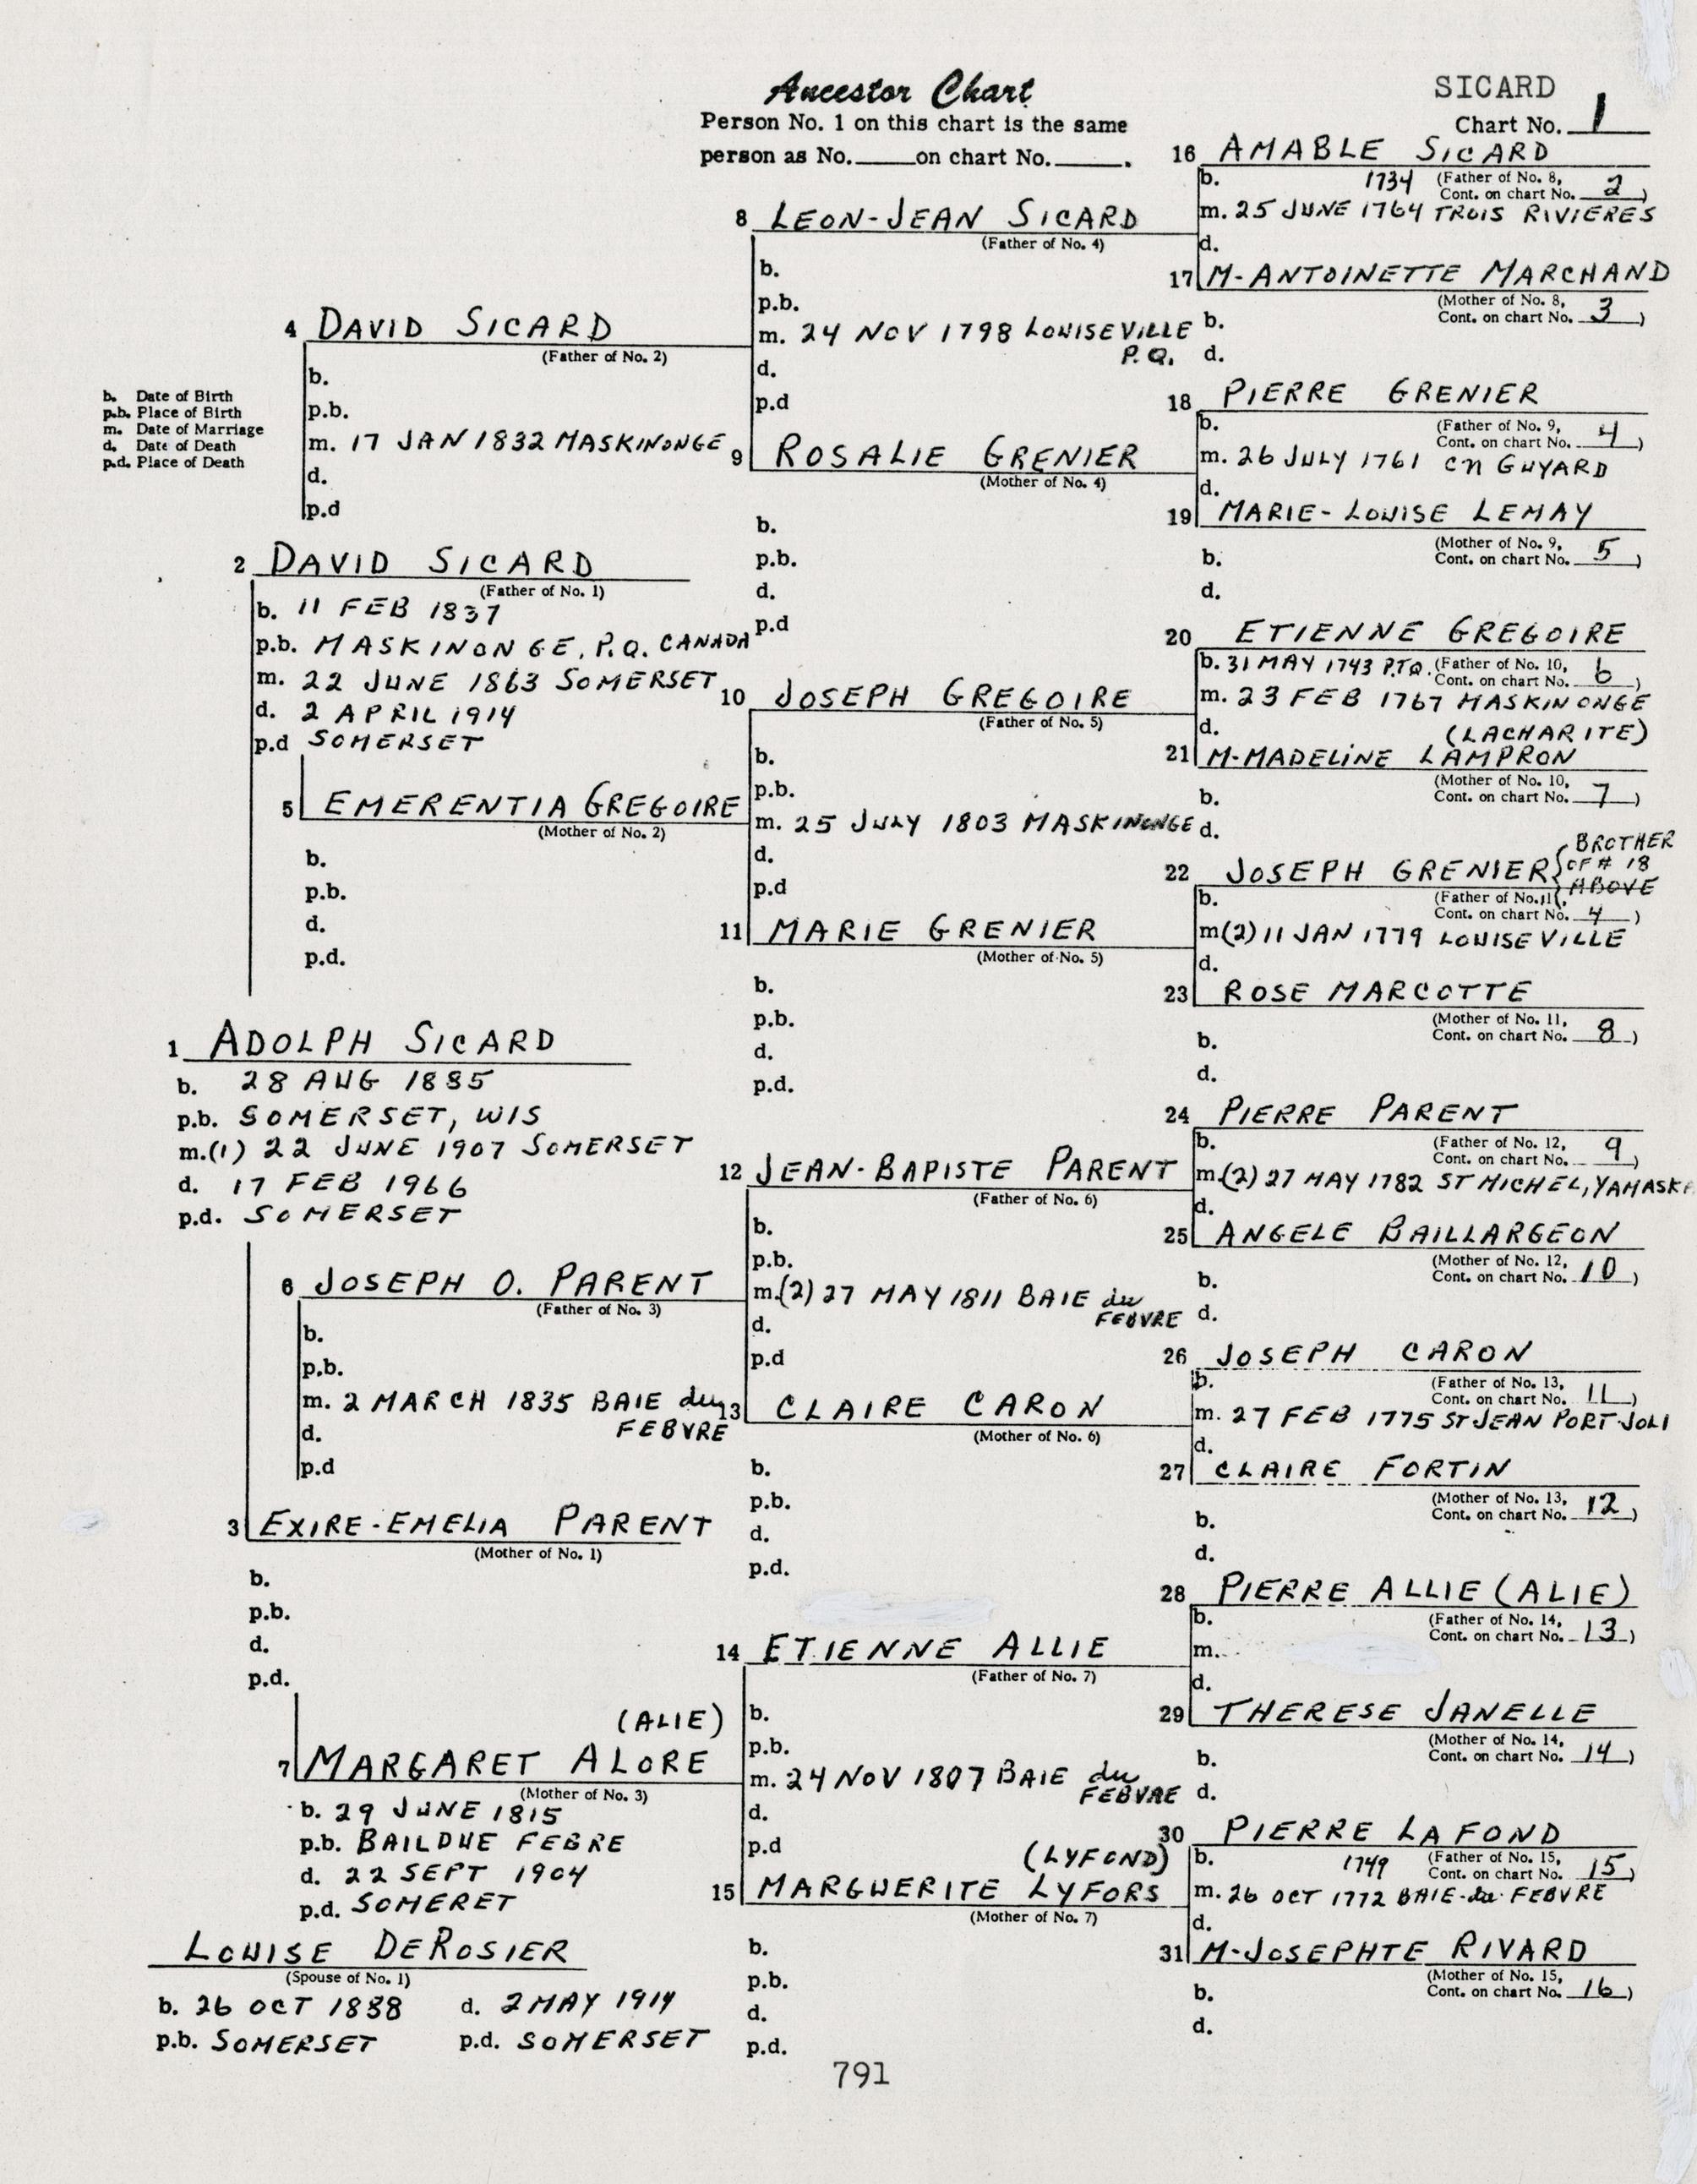 Ancestor Chart
Person No. 1 on this chart is the same
person as No. ____ on chart No. ____.
SICARD
Chart No. 1
b. Date of Birth
p.b. Place of Birth
m. Date of Marriage
d. Date of Death
p.d. Place of Death
1 ADOLPH SICARD
b. 28 AUG 1885
p.b. SOMERSET, WIS
m.(1) 22 JUNE 1907 SOMERSET
d. 17 FEB 1966
p.d. SOMERSET
2 DAVID SICARD
(Father of No. 1)
b. 11 FEB 1837
p.b. MASKINONGE, P.Q. CANADA
m. 22 JUNE 1863 SOMERSET
d. 2 APRIL 1914
p.d SOMERSET
3 EXIRE-EMELIA PARENT
(Mother of No. 1)
b.
p.b.
d.
p.d.
4 DAVID SICARD
(Father of No. 2)
b.
p.b.
m. 17 JAN 1832 MASKINONGE
d.
p.d
5 EMERENTIA GREGOIRE
(Mother of No. 2)
b.
p.b.
d.
p.d.
6 JOSEPH O. PARENT
(Father of No. 3)
b.
p.b.
m. 2 MARCH 1835 BAIE du
FEBVRE
d.
p.d
(ALIE)
7 MARGARET ALORE
(Mother of No. 3)
b. 29 JUNE 1815
p.b. BAILDUE FEBRE
d. 22 SEPT 1904
p.d. SOMERET
LOUISE DEROSIER
(Spouse of No. 1)
b. 26 OCT 1888 d. 2 MAY 1914
p.b. SOMERSET p.d. SOMERSET
8 LEON-JEAN SICARD
(Father of No. 4)
b.
p.b.
m. 24 NOV 1798 LOUISEVILLE
P.Q.
d.
p.d
9 ROSALIE GRENIER
(Mother of No. 4)
b.
p.b.
d.
p.d
10 JOSEPH GREGOIRE
(Father of No. 5)
b.
p.b.
m. 25 JULY 1803 MASKINONGE
d.
p.d
11 MARIE GRENIER
(Mother of No. 5)
b.
p.b.
d.
p.d.
12 JEAN-BAPISTE PARENT
(Father of No. 6)
b.
p.b.
m.(2) 27 MAY 1811 BAIE du
FEBVRE
d.
p.d
13 CLAIRE CARON
(Mother of No. 6)
b.
p.b.
d.
p.d.
14 ETIENNE ALLIE
(Father of No. 7)
b.
p.b.
m. 24 NOV 1807 BAIE du
FEBVRE
d.
p.d
(LYFOND)
15 MARGUERITE LYFORS
(Mother of No. 7)
b.
p.b.
d.
p.d.
16 AMABLE SICARD
b. 1734 (Father of No. 8,
Cont. on chart No. 2)
m. 25 JUNE 1764 TROIS RIVIERES
d.
17 M-ANTOINETTE MARCHAND
(Mother of No. 8,
Cont. on chart No. 3)
b.
d.
18 PIERRE GRENIER
b. (Father of No. 9,
Cont. on chart No. 4)
m. 26 JULY 1761 cn GUYARD
d.
19 MARIE-LOUISE LEMAY
(Mother of No. 9,
Cont. on chart No. 5)
b.
d.
20 ETIENNE GREGOIRE
b. 31 MAY 1743 P.T.Q. (Father of No. 10,
Cont. on chart No. 6)
m. 23 FEB 1767 MASKINONGE
d. (LACHARITE)
21 M-MADELINE LAMPRON
(Mother of No. 10,
Cont. on chart No. 7)
b.
d.
22 JOSEPH GRENIER { BROTHER
OF # 18
ABOVE
b. (Father of No. 11,
Cont. on chart No. 4)
m(2) 11 JAN 1779 LOUISEVILLE
d.
23 ROSE MARCOTTE
(Mother of No. 11,
Cont. on chart No. 8)
b.
d.
24 PIERRE PARENT
b. (Father of No. 12,
Cont. on chart No. 9)
m.(2) 27 MAY 1782 ST MICHEL, YAMASKA
d.
25 ANGELE BAILLARGEON
(Mother of No. 12,
Cont. on chart No. 10)
b.
d.
26 JOSEPH CARON
b. (Father of No. 13,
Cont. on chart No. 11)
m. 27 FEB 1775 ST JEAN PORT JOLI
d.
27 CLAIRE FORTIN
(Mother of No. 13,
Cont. on chart No. 12)
b.
d.
28 PIERRE ALLIE (ALIE)
b. (Father of No. 14,
Cont. on chart No. 13)
m.
d.
29 THERESE JANELLE
(Mother of No. 14,
Cont. on chart No. 14)
b.
d.
30 PIERRE LAFOND
b. 1749 (Father of No. 15,
Cont. on chart No. 15)
m. 26 OCT 1772 BAIE-du-FEBVRE
d.
31 M-JOSEPHTE RIVARD
(Mother of No. 15,
Cont. on chart No. 16)
b.
d.
791